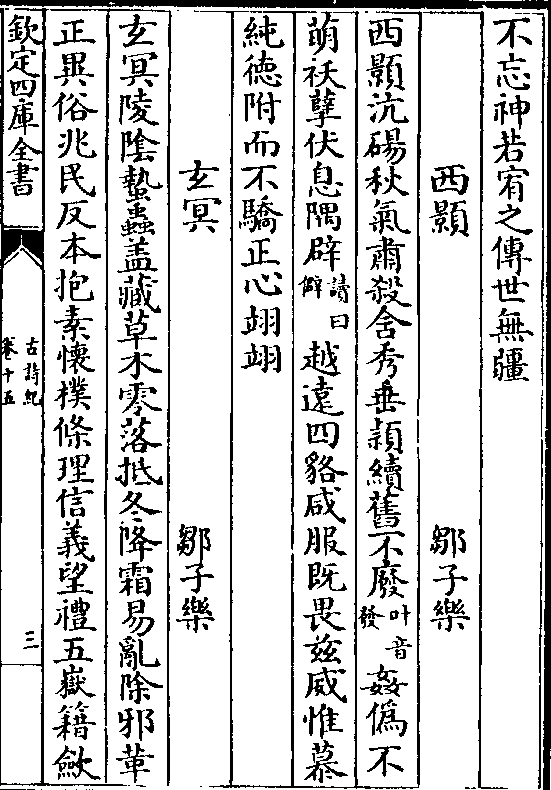 不忘神若宥之傳世無疆
西顥　鄒子樂
西顥沆碭秋氣肅殺舍秀垂頴續舊不廢叶音發姦偽不
萌祅孽伏息隅辟讀曰僻越遠四貉咸服既畏兹威惟慕
純德附而不驕正心翊翊
𤣥冥　鄒子樂
𤣥冥陵陰蟄蟲盖藏草木零落抵冬降霜易亂除邪革
正異俗兆民反本抱素懷樸條理信義望禮五嶽籍斂
欽定四庫全書
古詩紀
卷十五
三